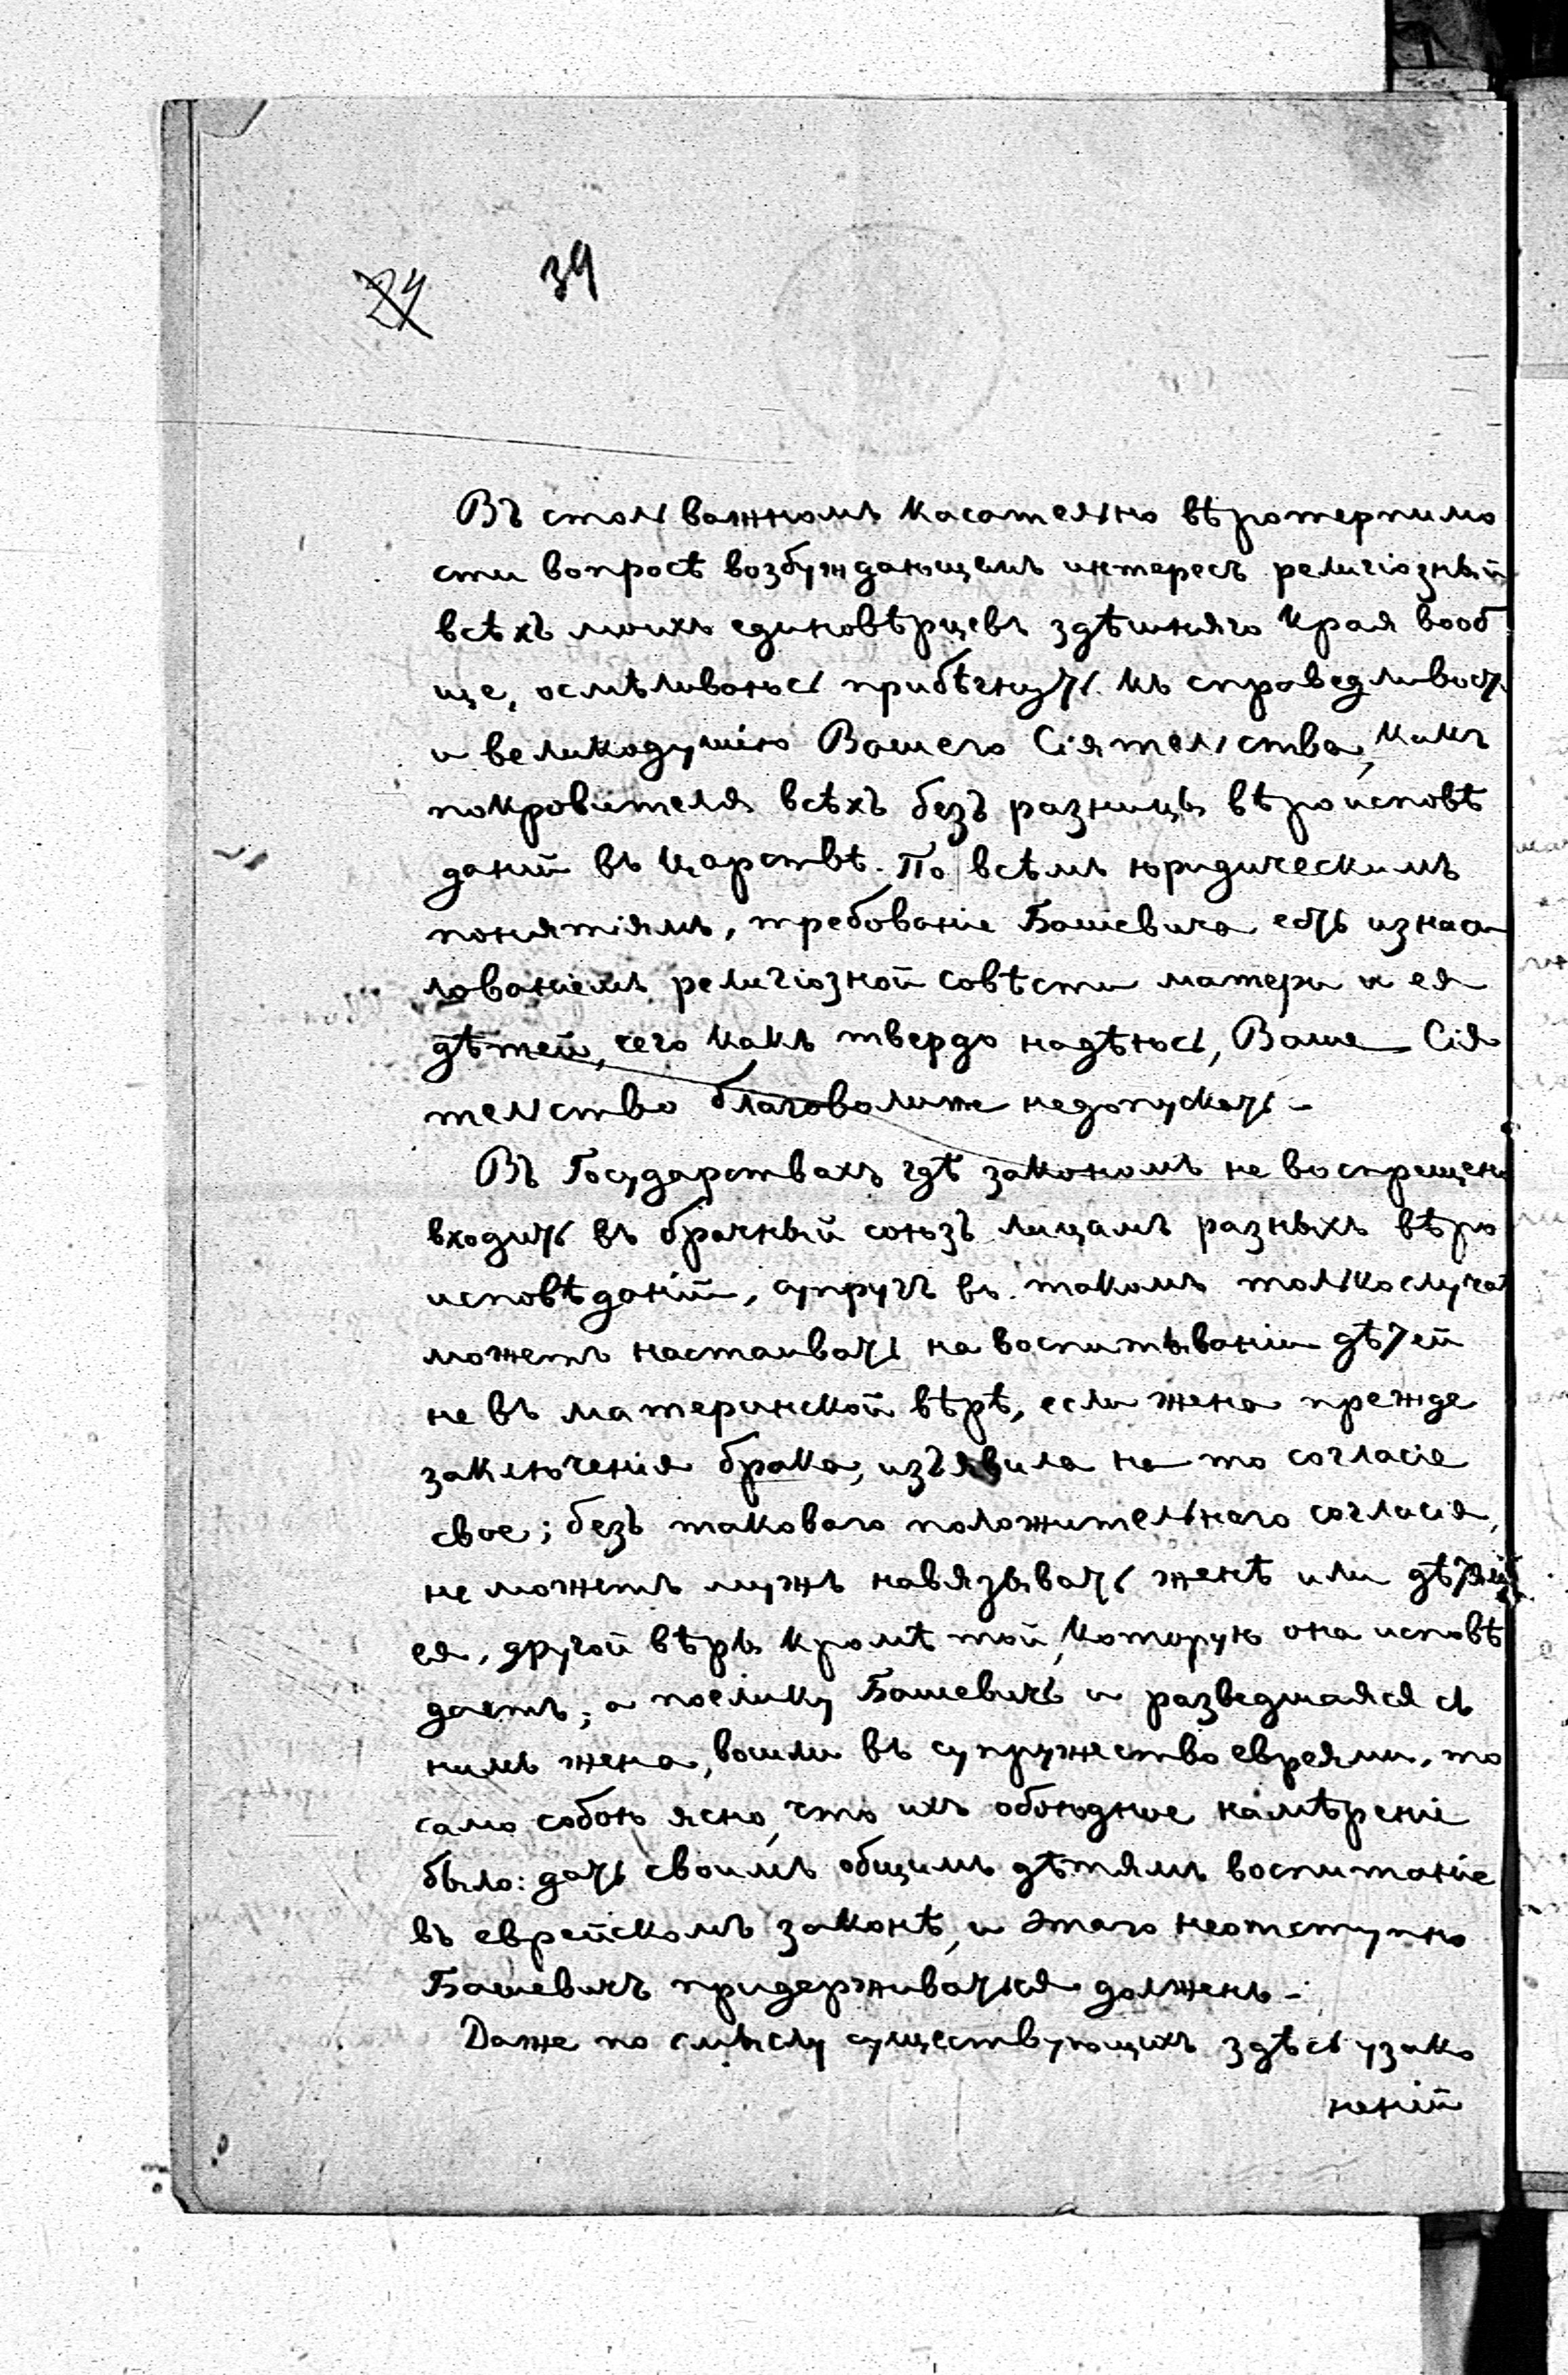 24 39
Въ столь важномъ касательно вѣротерпимо
сти вопросѣ возбуждающемъ интересъ религіозный
всѣхъ моихъ единовѣрцевъ здѣшняго Края вооб
ще, осмѣливаюсь прибѣгнуть къ справедливост
и великодушію Вашего Сіятельства, какъ
покровителя всѣхъ безъ разницы вѣроисповѣ
даній въ Царствѣ. По всѣмъ юридическимъ
понятіямъ, требованіе Башевича есть изнаси
лованіемъ религіозной совѣсти матери и ея
дѣтей, чего какъ твердо надѣюсь, Ваше Сія
тельство благоволите недопускать -
Въ Государствахъ гдѣ закономъ не воспрещено
входить въ брачный союзъ лицамъ разныхъ вѣро
исповѣданій, супругъ въ такомъ только случаѣ
можетъ настаивать на воспитываніи дѣтей
не въ материнской вѣрѣ, если жена прежде
заключенія брака, изъявила на то согласіе
свое; безъ таковаго положительнаго согласія,
не можетъ мужъ навязывать женѣ или дѣтямъ
ея, другой вѣры кромѣ той, которую она исповѣ
даетъ; а поелику Башевичъ и разведшаяся съ
нимъ жена, вошли въ супружество евреями, то
само собою ясно, что ихъ обоюдное намѣреніе
было: дать своимъ общимъ дѣтямъ воспитаніе
въ еврейскомъ законѣ, и этаго неотступно
Башевичъ придерживаться долженъ -
Даже по смыслу существующихъ здѣсь узако
неній